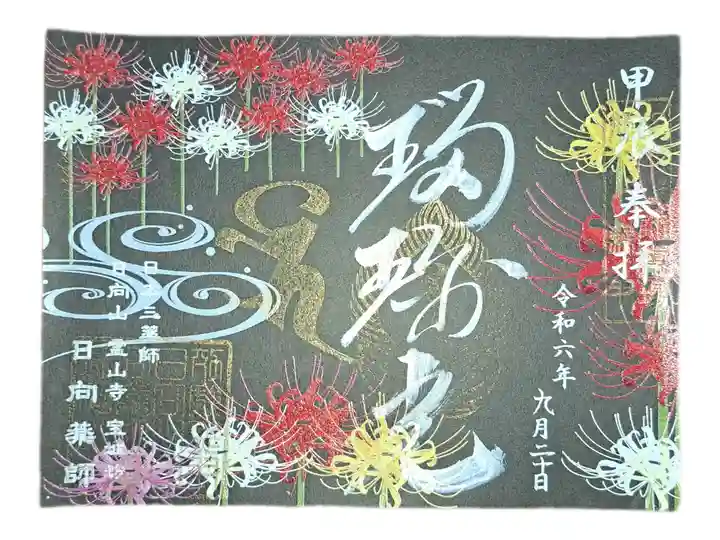 甲辰 奉拝
令和六年 九月二十日
瑠璃光
日本三薬師
日向山 霊山寺 宝城坊
日向薬師